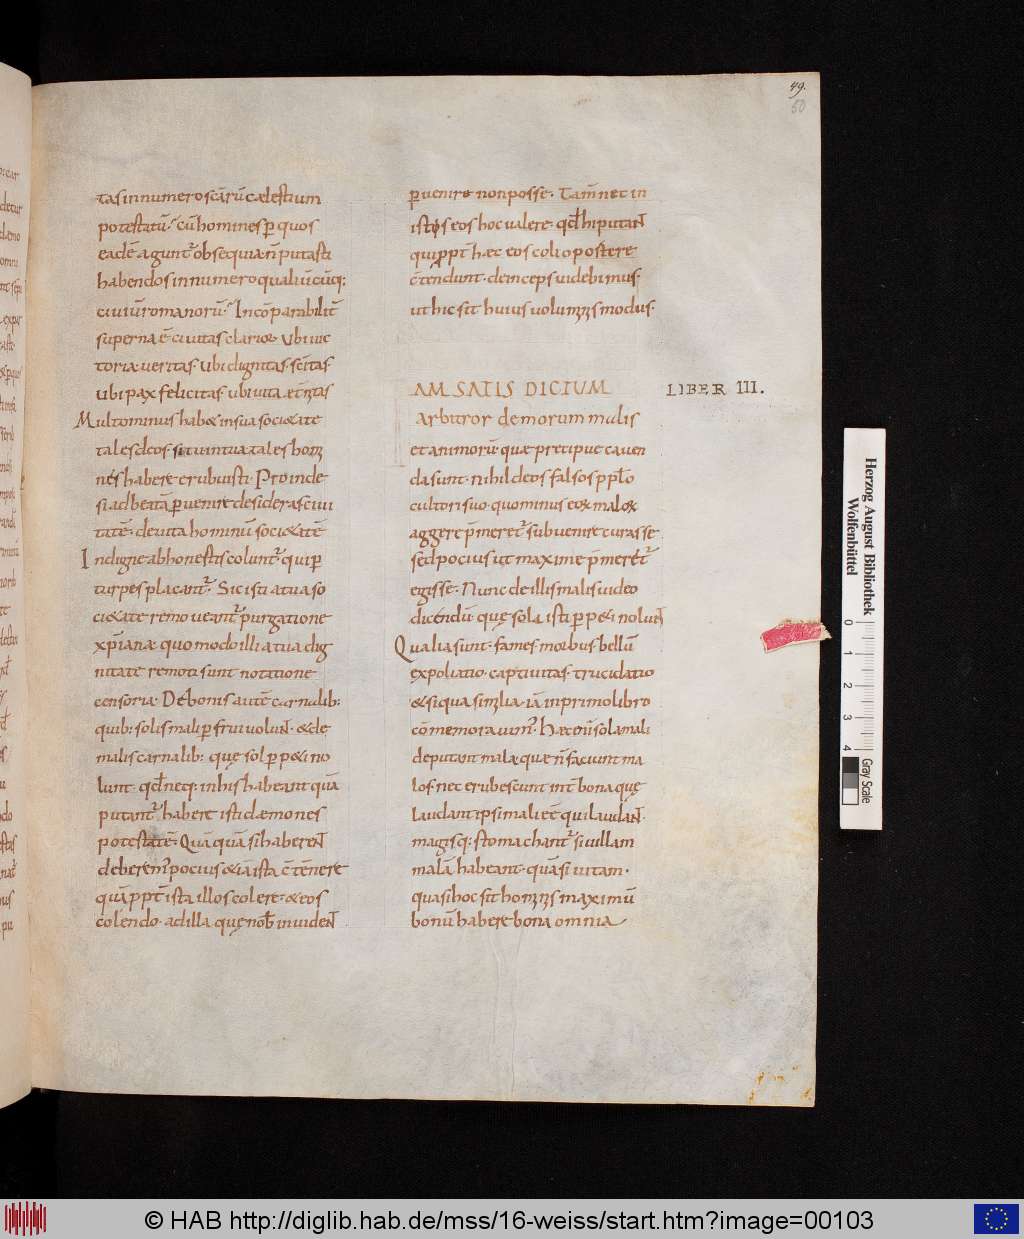 49.
50
tas in numero s̄cārū cælestium
potestatū. Cū homines ꝑ quos
eadē aguntr̄ obsequia n̄ putasti
habendos in numero qualiūcūq:
ciuiū romanorū. Incōparabilit̄
superna ē ciuitas clarior ubi uic
toria ueritas. Ubi dignitas sc̄itas
ubi pax felicitas. ubi uita æt̄nitas
Multo minus hab& in sua soci&ate
tales deos si tu in tua tales hom̄
nes habere erubuisti. Proinde
si ad beatā ꝑuenire desideras ciui
tatē. deuita hominū soci&atē
Indigne ab honestis coluntr̄ qui ꝑ
turpes placantr̄. Sic isti a tua so
ci&ate remoueantr̄ purgatione
xp̄iana. quomodo illi a tua dig
nitate remoti sunt notatione
censoria. De bonis autē carnalib:
quib: solis mali ꝑfrui uolun̄t. & de
malis carnalib: quę sola ꝑp&i no
lunt. qd̄ nec q: in his habeant quā
putantr̄ habere isti dæmones
potestatē. Quāquā si haberen̄t
deberem potius &iā ista c̄tēnere
quā ꝓpt̄ ista illos colere. & eos
colendo. ad illa quę nob̄ inuiden̄t
ꝑuenire non posse. Tam̄ nec in
istos eos hoc ualere. qd̄ hi putan̄t
qui ꝓpt̄ hæc eos coli oportere
c̄tendunt. deinceps uidebimus.
ut hic sit huius uoluminis modus.
AM SATIS DICTUM
LIBER III.
Arbitror de morum malis
et animorū quæ precipue cauen
da sunt. nihil deos falsos pplō
cultori suo. quominus eor̄ malor̄
aggere p̄meretr̄ subuenire curasse
sed pocius ut maxime p̄meretr̄
egisse. Nunc de illis malis uideo
dicendū. quę sola isti ꝑp&i nolun̄t
Qualia sunt. fames morbus bellū
expoliatio captiuitas. trucidatio
& si qua similia. iā in primo libro
cōmemorauim̄. Hæc enī sola mali
deputant mala. quæ n̄ faciunt ma
los. nec erubescunt int̄ bona quę
laudant ipsi mali eē qui laudan̄t.
magisq: stomachantr̄ si uillam
malā habeant. quā si uitam.
quasi hoc sit hominis maximū
bonū habere bona omnia
Herzog August Bibliothek
Wolfenbüttel
0 1 2 3 4
Gray Scale
© HAB http://diglib.hab.de/mss/16-weiss/start.htm?image=00103